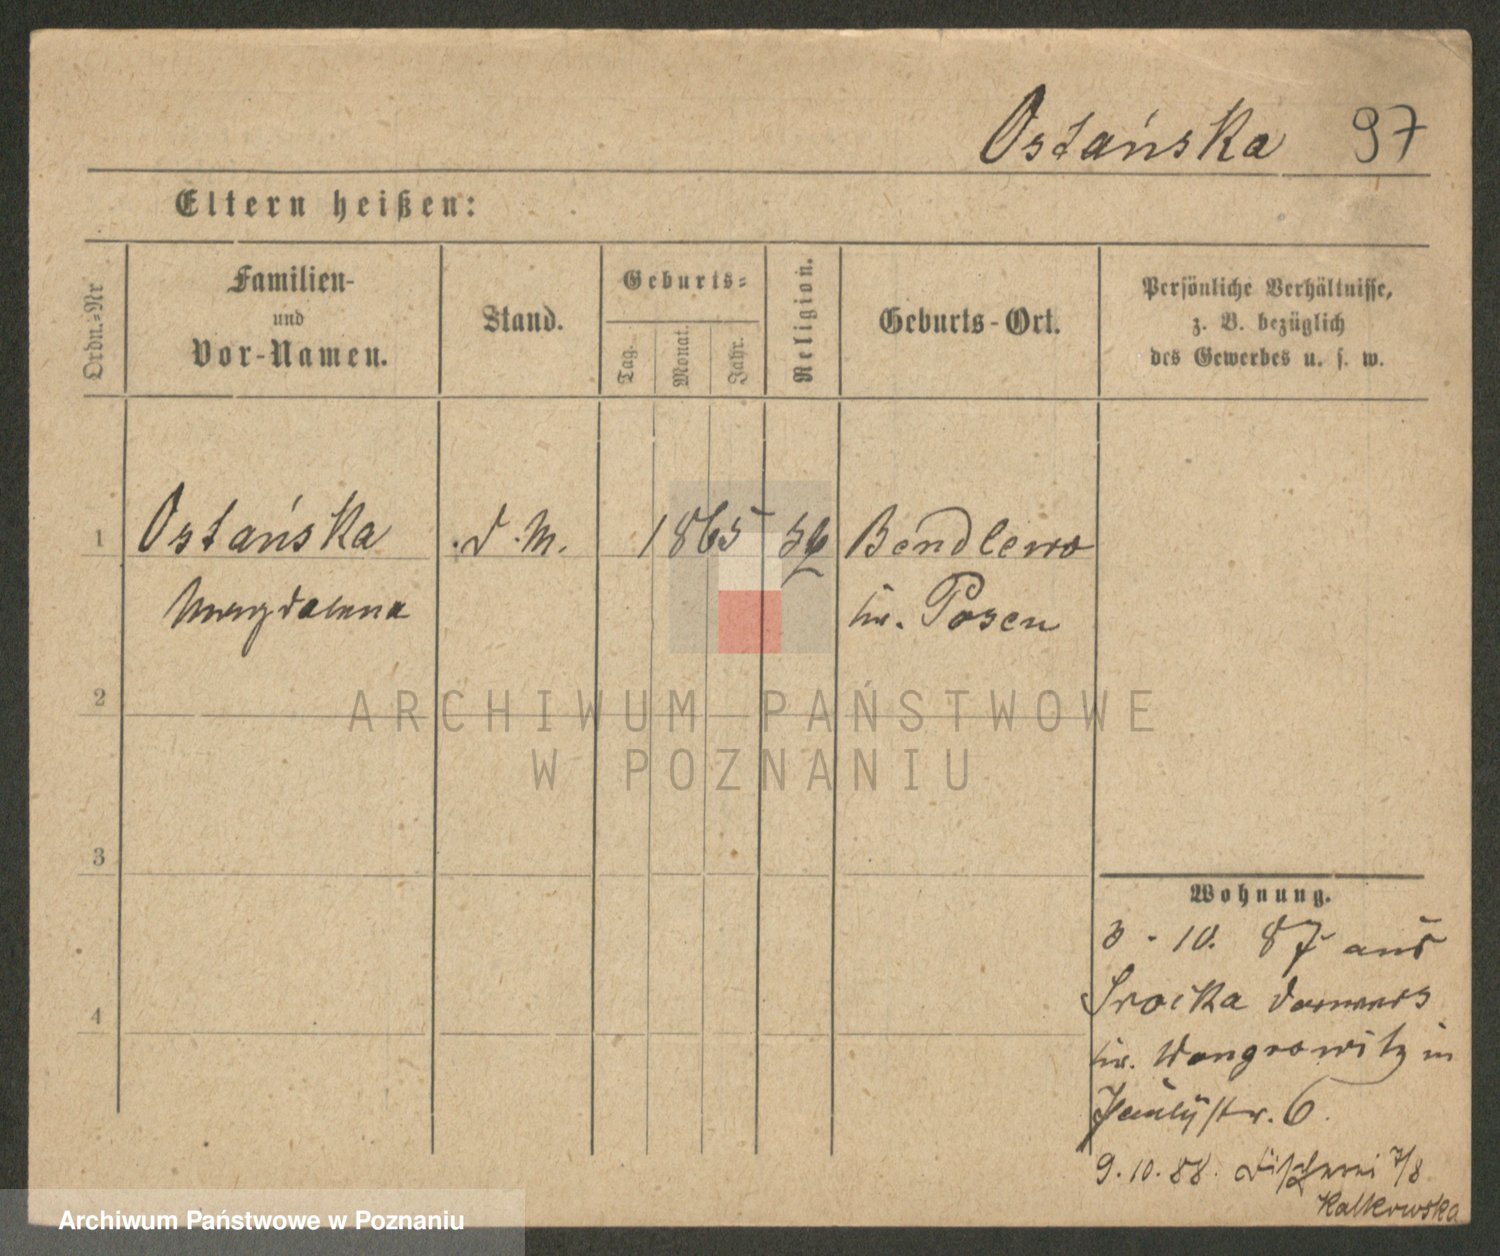 Ostańska 97
Eltern heißen:
Ordn.-Nr
Familien-
und
Vor-Namen.
Stand.
Geburts-
Tag.
Monat.
Jahr.
Religion.
Geburts-Ort.
Persönliche Verhältnisse,
z. B. bezüglich
des Gewerbes u. s. w.
1 Ostańska d. M. 1865 Bendlewo
Magdalena Kr. Posen
2
ARCHIWUM PAŃSTWOWE
W POZNANIU
3
Wohnung.
3-10. 87 aus
Srocka
4
Kr. Wongrowitz in
Paulistr. 6.
9.10.88. Fischerei 7/8
Kalkowska
Archiwum Państwowe w Poznaniu